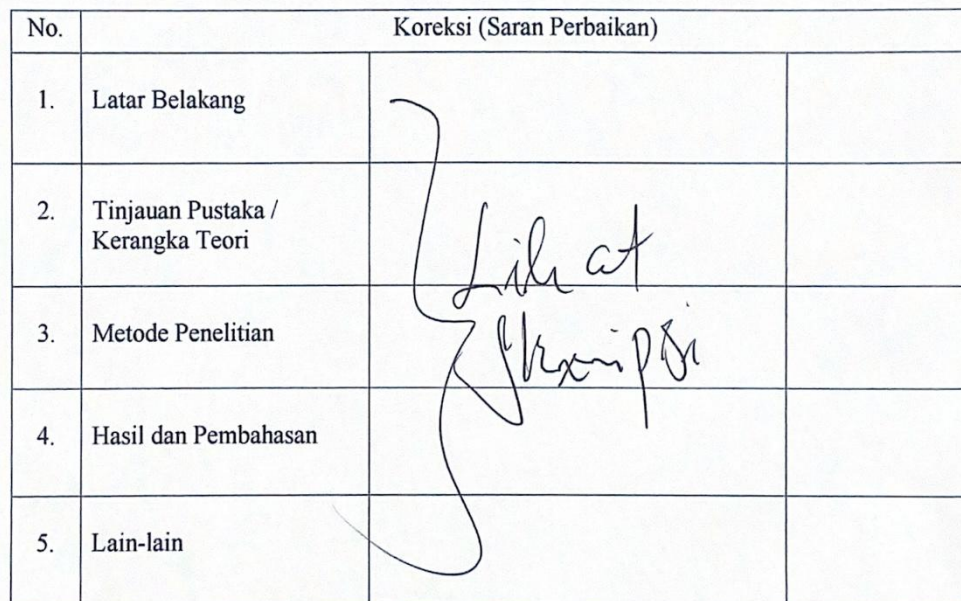 No. Koreksi (Saran Perbaikan)
1. Latar Belakang
2. Tinjauan Pustaka /
Kerangka Teori
3. Metode Penelitian
4. Hasil dan Pembahasan
5. Lain-lain
Lihat
Skripsi